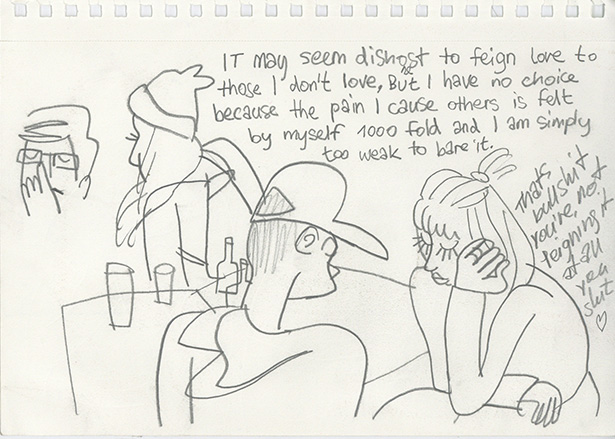 IT may seem dishonest to feign love to
those I don't love, But I have no choice
because the pain I cause others is felt
by myself 1000 fold and I am simply
too weak to bare it.
Thats
bullshit
you're, not
feigning it
at all
yea
slut
♡